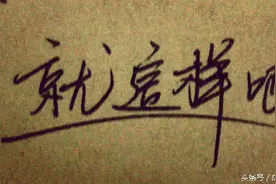 就这样
头条号